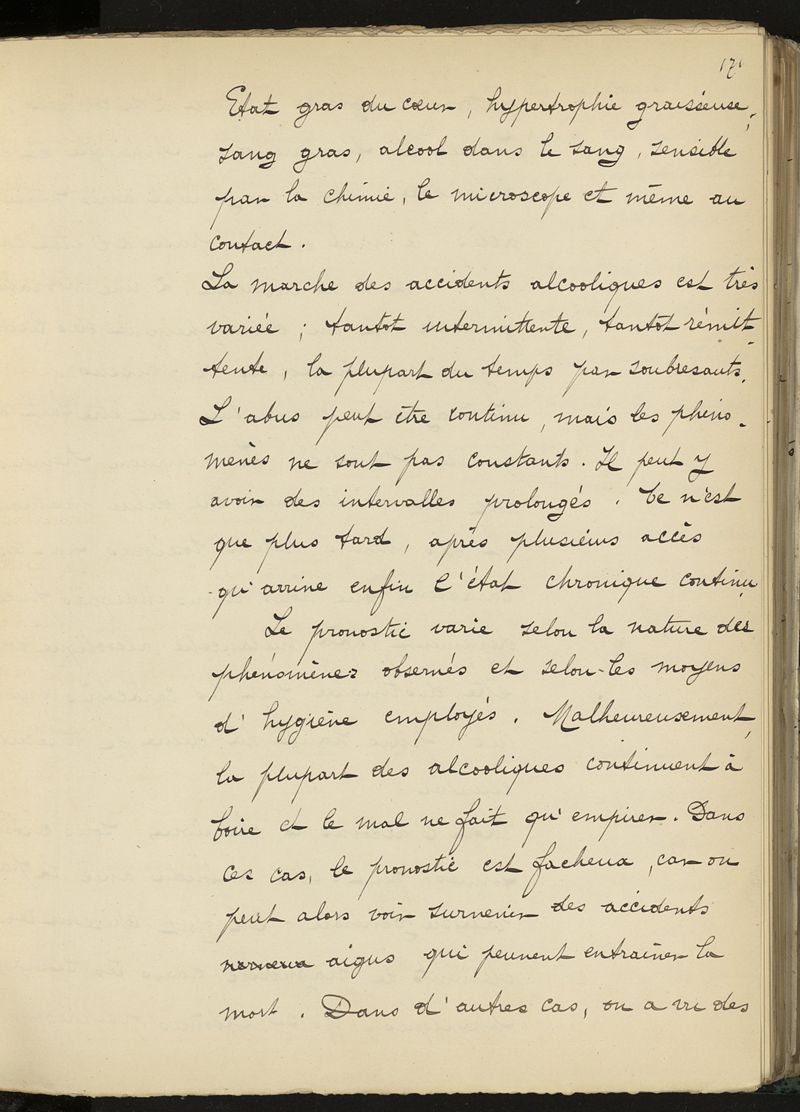 171
Etat gras du cœur, hypertrophie graisseuse,
sang gras, alcool dans le sang, sensible
par la chimie, le microscope et même au
contact.
La marche des accidents alcooliques est très
variée ; tantot intermittente, tantot rémit-
tente, la plupart du temps par soubresauts.
L'abus peut être continu, mais les phéno-
menès ne sont pas constants. Il peut y
avoir des intervalles prolongés. Ce n'est
que plus tard, après plusieurs accès
qu'arrive enfin l'état chronique continu.
Le pronostic varie selon la nature des
phénomènes observés et selon les moyens
d'hygiène employés. Malheureusement,
la plupart des alcooliques continuent à
boire et le mal ne fait qu'empirer. Dans
ces cas, le pronostic est facheux, car on
peut alors voir survenir des accidents
nerveux aigus qui peuvent entraîner la
mort. Dans d'autres cas, on a vu des